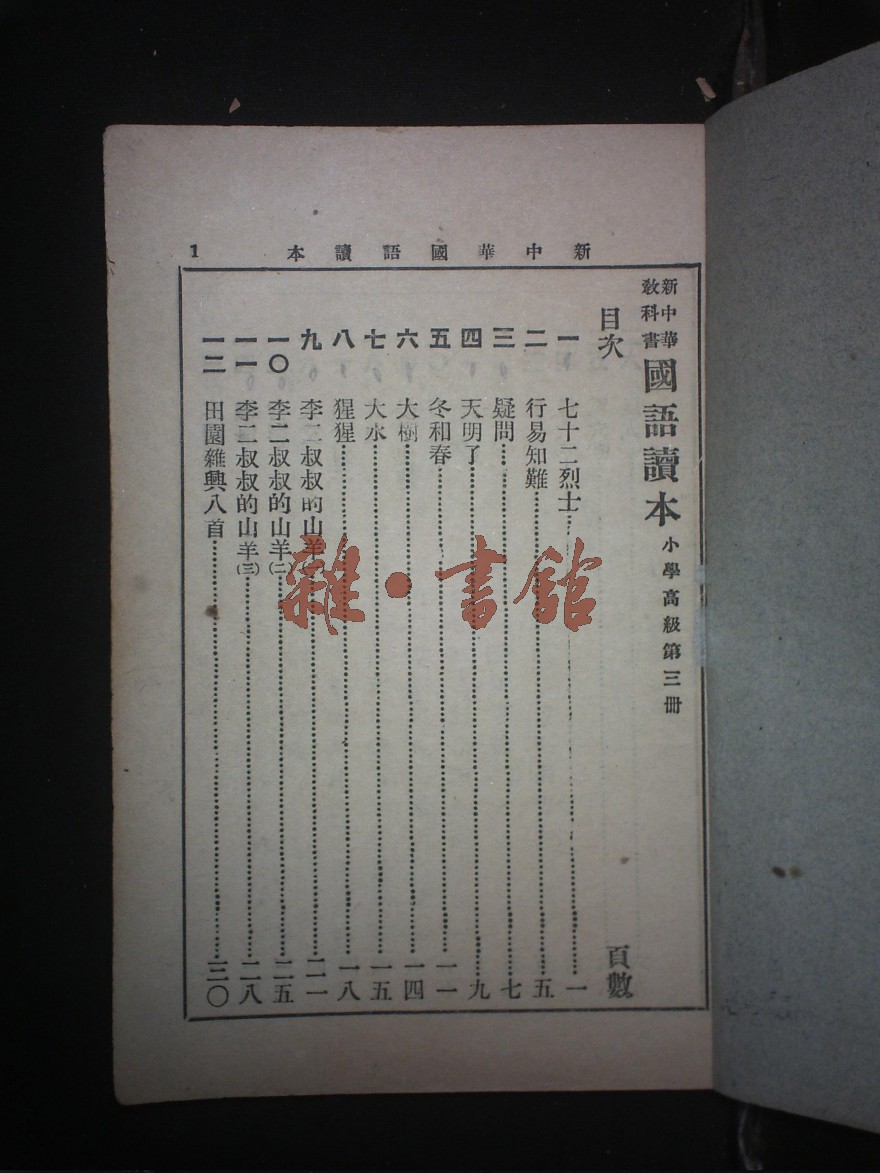 新中華國語讀本 1
新中華敎科書 國語讀本 小學高級第三冊
目次 頁數
一 七十二烈士……一
二 行易知難……五
三 疑問……七
四 天明了……九
五 冬和春……一一
六 大樹……一四
七 大水……一五
八 猩猩……一八
九 李二叔叔的山羊……二一
一〇 李二叔叔的山羊(二)……二五
一一 李二叔叔的山羊(三)……二八
一二 田園雜興八首……三〇
雜·書館